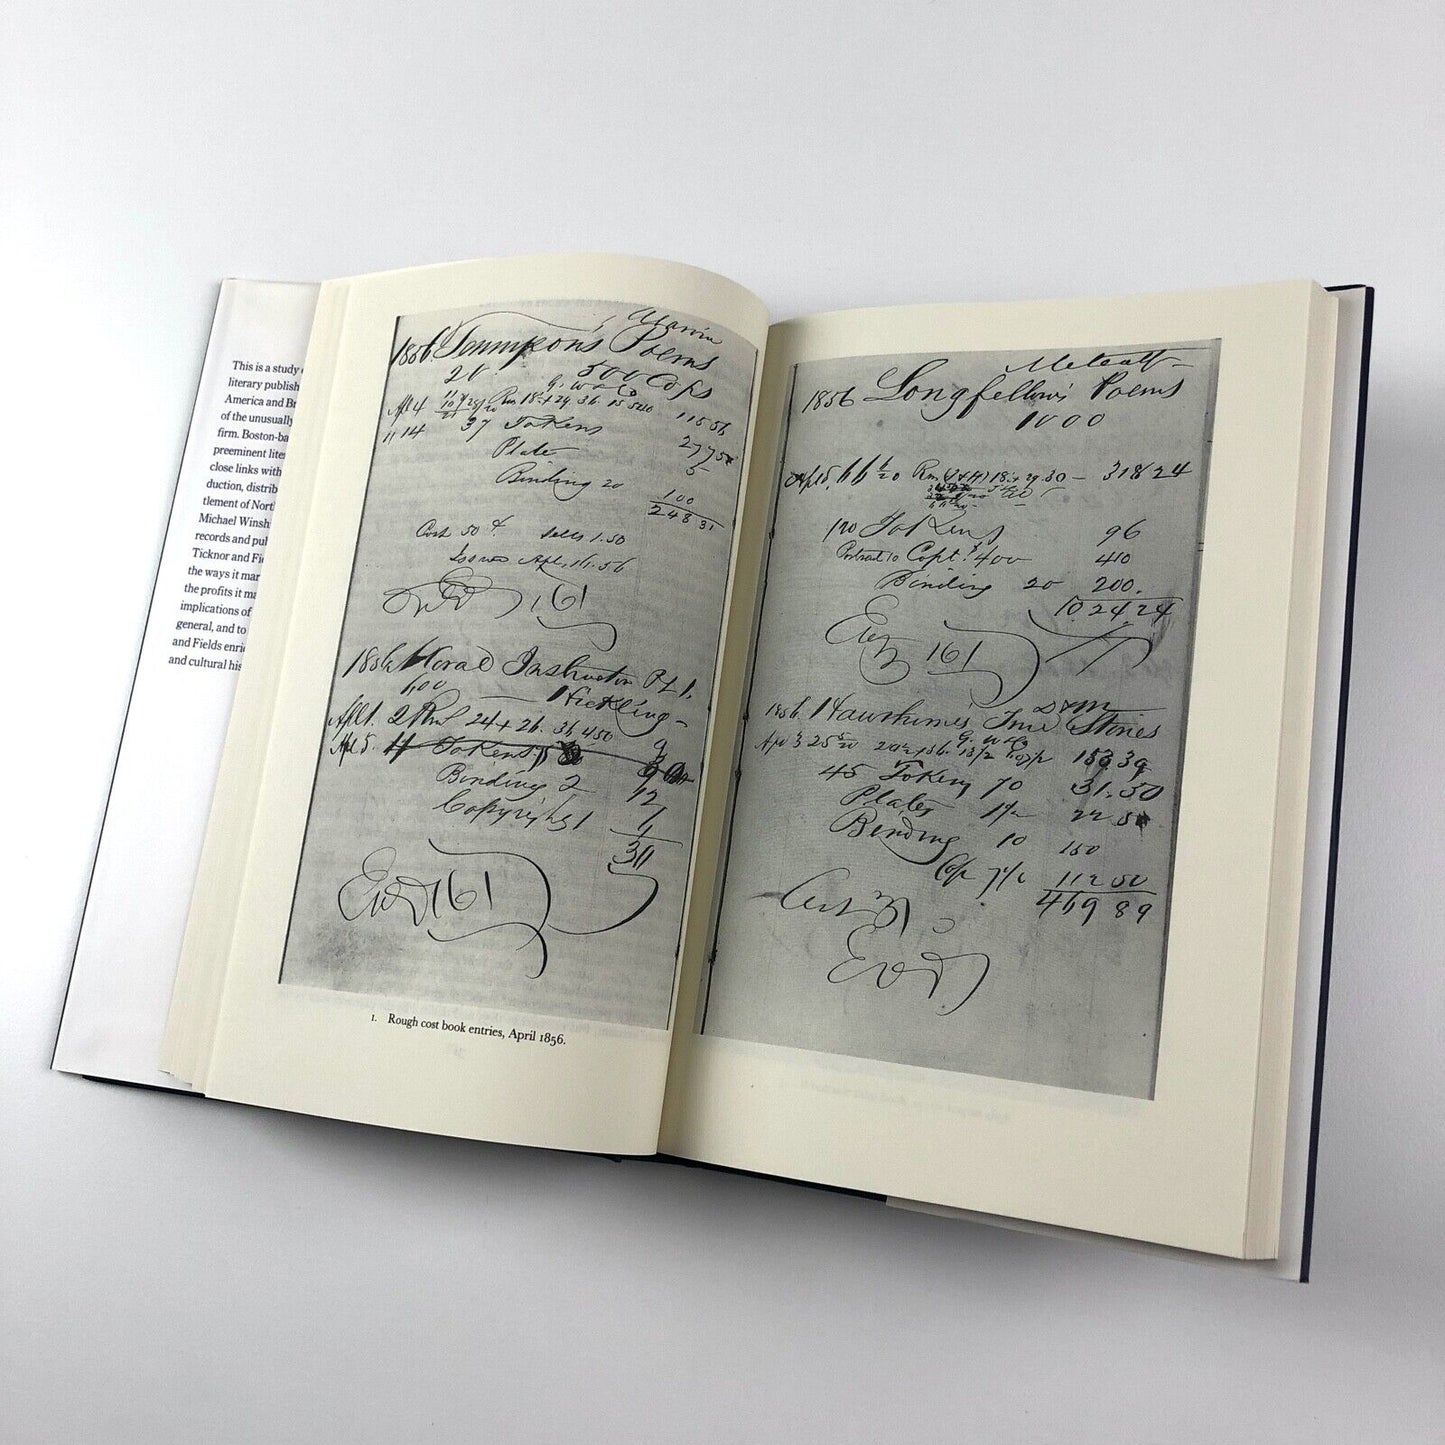 This is a study
literary publish
America and Br
of the unusually
firm. Boston-ba
preeminent lite
close links with
duction, distrib
tlement of Nort
Michael Winsh
records and pul
Ticknor and Fi
the ways it mar
the profits it ma
implications of
general, and to
and Fields enri
and cultural his
1856. Tennyson's Poems
20 500 Cops
G. W & Co
Apl 4
115 56
11 14 37 Tokens 27 75
Plates 5
Binding 20 100
248 31
Cost 50 Sells 1.50
Issued Apl. 16. 56
161
1856 Moral Instructor Pt 1.
600 Pickling
Apl 1. 2 Rms 24 + 26. 36 450 9
Apl 5. 4 Tokens
Binding 2 12
Copyright 1
30
161
1. Rough cost book entries, April 1856.
Metcalf
1856 Longfellow's Poems
1000
Apl 5, 66 Rm 30 – 318 24
120 Tokens 96
Portrait 10 Copt. 400 410
Binding 20 200.
1024 24
161
1856. Hawthorne's True Stories
G. W & Co
Apr 3 25 153 39
45 Tokens 70 31.50
Plates 22 50
Binding 10 150
112 50
469 89